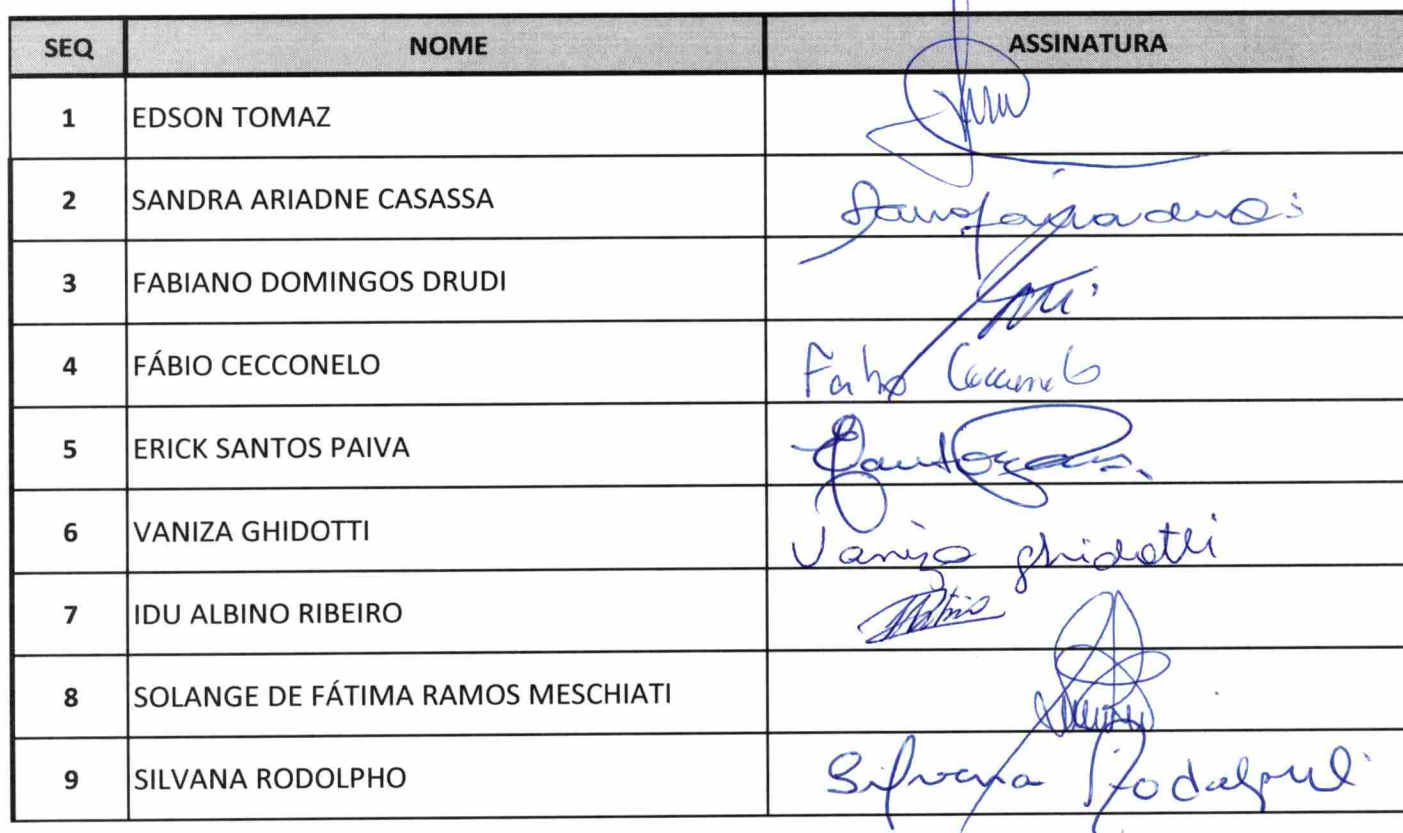 SEQ NOME ASSINATURA
1 EDSON TOMAZ
2 SANDRA ARIADNE CASASSA
3 FABIANO DOMINGOS DRUDI
4 FÁBIO CECCONELO Fabio Cecconelo
5 ERICK SANTOS PAIVA
6 VANIZA GHIDOTTI Vaniza ghidotti
7 IDU ALBINO RIBEIRO
8 SOLANGE DE FÁTIMA RAMOS MESCHIATI
9 SILVANA RODOLPHO Silvana